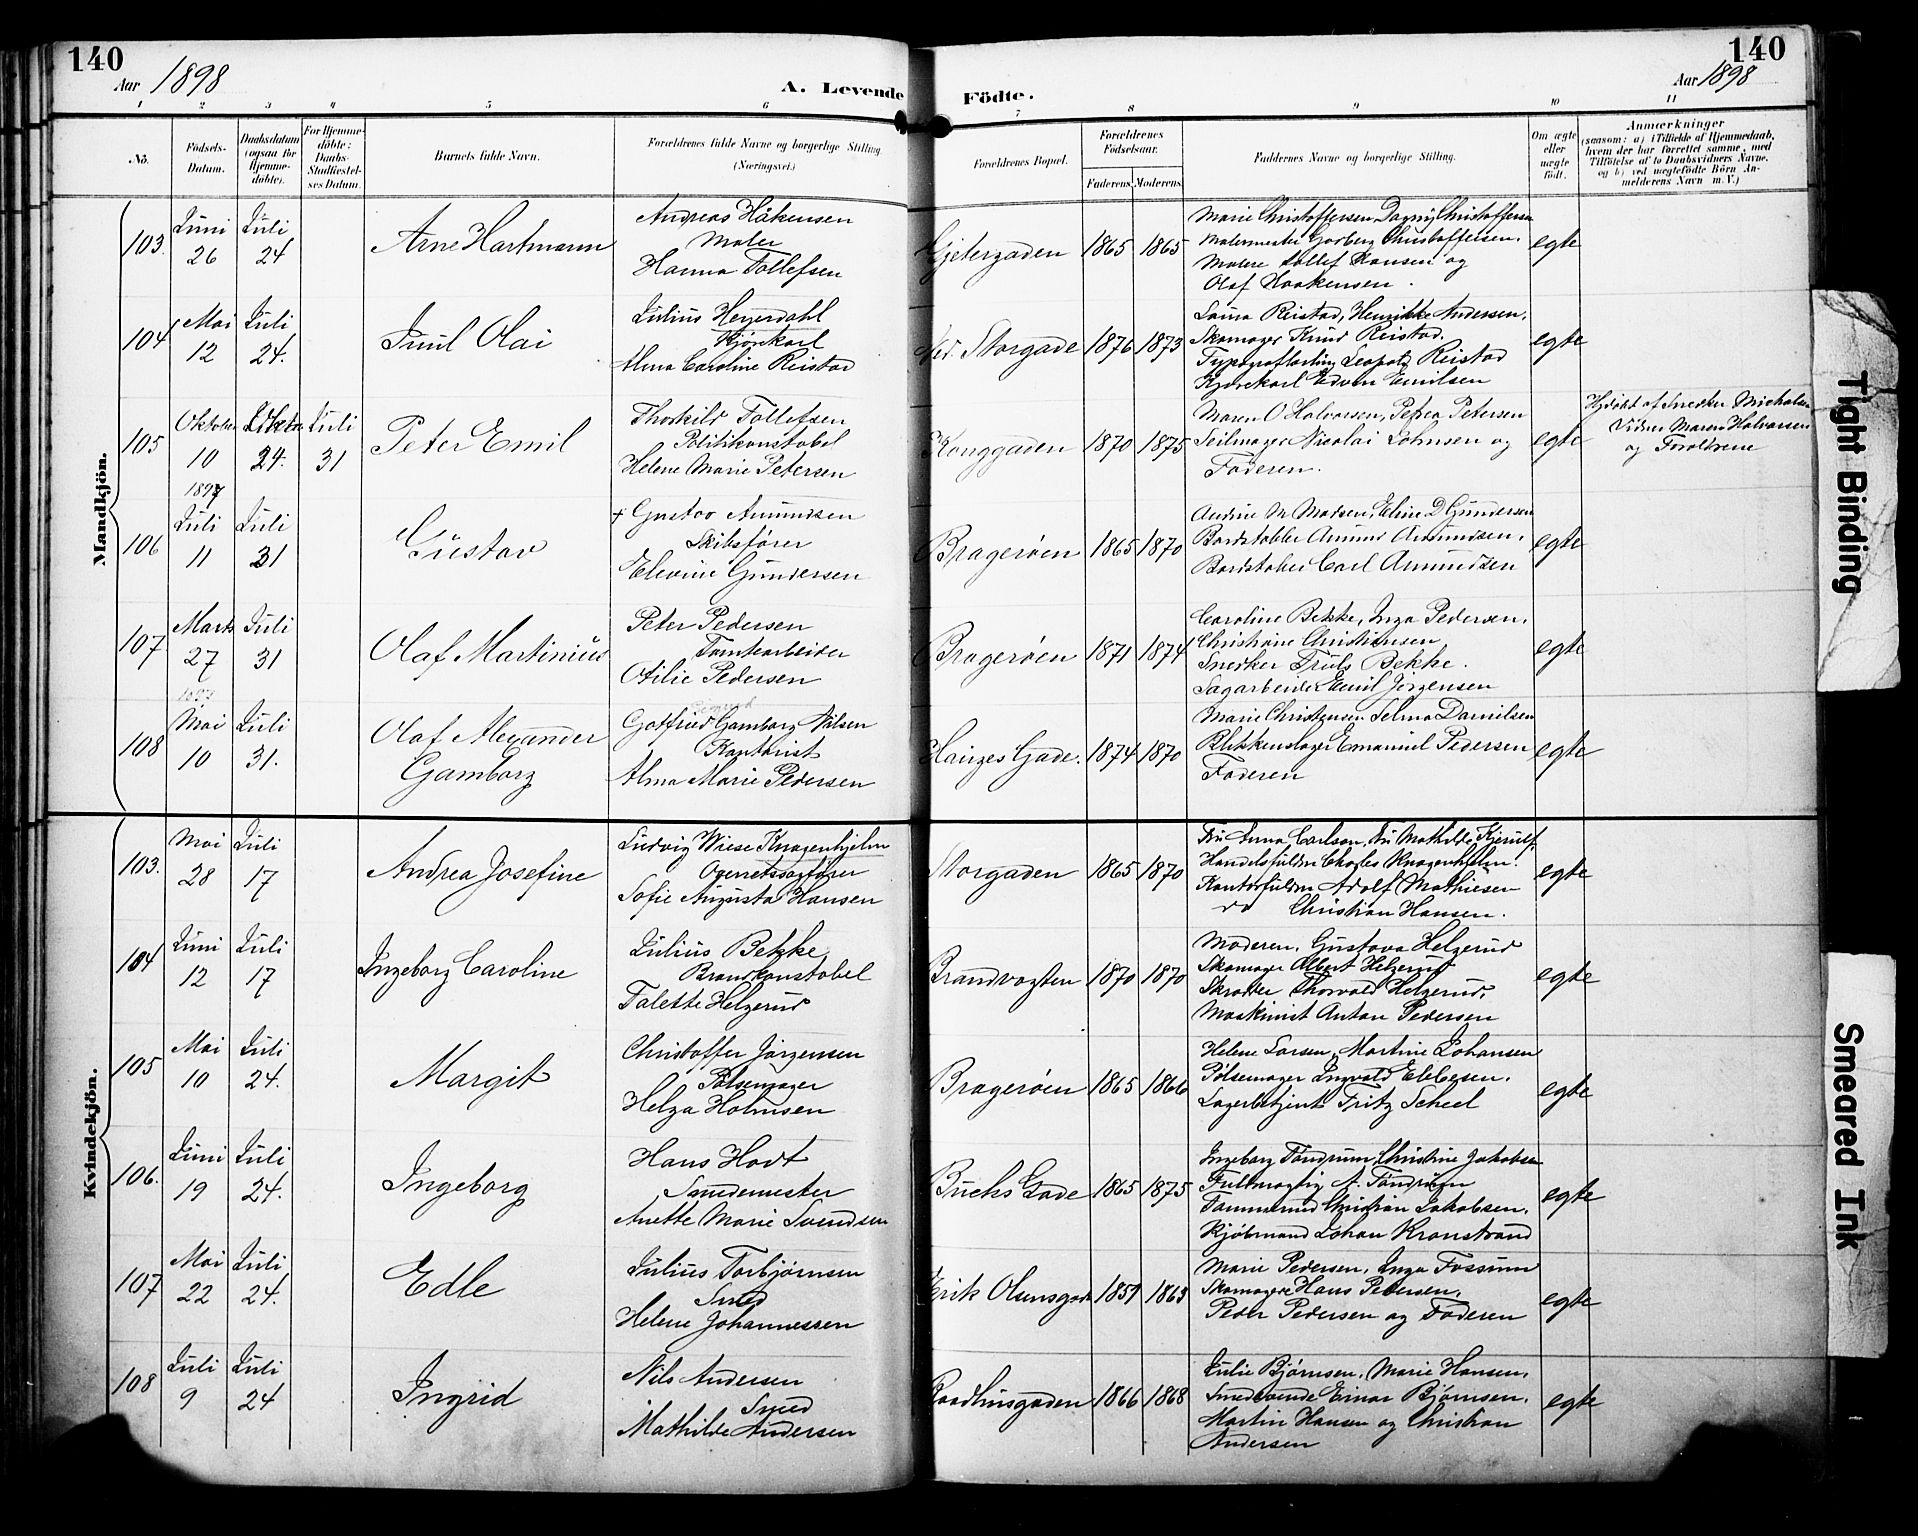 140
Aar 1898
A. Levende
Födte.
140
Aar 1898
1 2 3 4 5 6 7 8 9 10 11
No.
Födsels-
Datum.
Daabsdatum
(ogsaa for
Hjemme-
döbte).
For Hjemme-
döbte:
Daabs-
Stadfæstel-
ses Datum.
Barnets fulde Navn.
Forældrenes fulde Navne og borgerlige Stilling
(Næringsvei.)
Forældrenes Bopæl.
Forældrenes
Födselsaar.
Faderens Moderens
Faddernes Navne og borgerlige Stilling.
Om ægte
eller
uægte
födt.
Anmærkninger
(saasom: a) i Tilfælde af Hjemmedaab,
hvem der har forrettet samme, med
Tilföielse af to Daabsvidners Navne,
og b) ved uægtefödte Börn An-
melderens Navn m. V.)
Mandkjön.
103. Juni 26 Juli 24 Arne Hartmann
Andreas Håkensen
Maler
Hanna Tollefsen
Gjetergaden 1865 1865
Marie Christoffersen, Dagny Christoffersen
Malermester Christoffersen,
Malere Tollef Hansen og
Olaf Haakensen.
egte
104 Mai 12 Juli 24. Juul Olai
Julius Heyerdahl
Kjørekarl
Alma Caroline Reistad
Ned. Storgade 1876 1873
Reistad, Henrikke Andersen,
Skomager Knud Reistad,
Reistad
Kjørekarl Edvin Emilsen
egte
105 Oktober 10 1897 24. Juli 31 Peter Emil
Thorkild Tollefsen
Politikonstabel
Helene Marie Petersen
Konggaden 1870 1875
Maren O Halvorsen, Petrea Petersen
Seilmager Nicolai Johnsen og
Faderen.
egte
Hjdøbt af Snedker Michalsen
Vidner Maren Halvorsen
og Forældrene
106 Juli 11 Juli 31 Gustav
+ Gustav Amundsen
Skibsfører
Elevine Gundersen
Bragerøen 1865 1870
M Madsen, Eline D Gundersen
Amundsen,
Carl Amundsen
egte
107 Marts 27 Juli 31 Olaf Martinius
Peter Pedersen
Tomtearbeider
Otilie Pedersen
Bragerøen 1871 1874
Caroline Bekke, Inga Pedersen,
Christiane Christiansen
Snedker Truls Bekke.
Sagarbeider Emil Jørgensen
egte
108 Mai 10 Juli 31. Olaf Alexander
Gamborg
Gotfried Gamborg Nilsen
Kontorist
Alma Marie Pedersen
Hauges Gade. 1874 1870
Marie Christensen Selma Danielsen
Blikkenslager Emanuel Pedersen
Faderen
egte
Kvindekjön.
103. Mai 28 Juli 17 Andrea Josefine
Ludvig Wiese Knagenhjelm
Overretssagfører
Sofie Augusta Hansen
Storgaden 1865 1870
Fru Anna Carlson, Fru Mathilde Kjerulf,
Knagenhjelm,
Adolf Mathiesen
do Christian Hansen.
egte
104 Juni 12 Juli 17 Ingeborg Caroline
Julius Bekke
Brandkonstabel
Talette Helgerud
Brandvagten 1870 1870
Moderen, Gustava Helgerud
Skomager Albert Helgerud
Skrædder Thorvald Helgerud,
Maskinist Anton Pedersen
egte
105 Mai 10 Juli 24. Margit
Christoffer Jørgensen
Pølsemager
Helga Holmsen
Bragerøen 1865 1866
Helene Larsen, Martine Johansen
Pølsemager Ingvald Ebbesen.
Lagerbetjent Fritz Scheel
egte
106. Juni 19 Juli 24. Ingeborg
Hans Hovt
Smedemester
Anette Marie Svendsen
Buchs Gade 1865 1875
Ingeborg Tandrum, Christine Jakobsen
Fuldmægtig A. Tandrum
Christian Jakobsen,
Kjøbmand Johan Kronstrand
egte
107 Mai 22 Juli 24. Edle
Julius Torbjørnsen
Smed
Helene Johannessen
Erik Olsensgade 1859 1863
Marie Pedersen, Inga Fossum
Skomagere Hans Pedersen,
Peder Pedersen og Faderen
egte
108 Juli 9 Juli 24 Ingrid
Nils Andersen
Smed
Mathilde Andersen
Raadhusgaden 1866 1868
Julie Bjørnsen, Marie Hansen,
Smedsvende Einar Bjørnsen,
Martin Hansen og Christian
Andersen
egte
Tight Binding
Smeared Ink